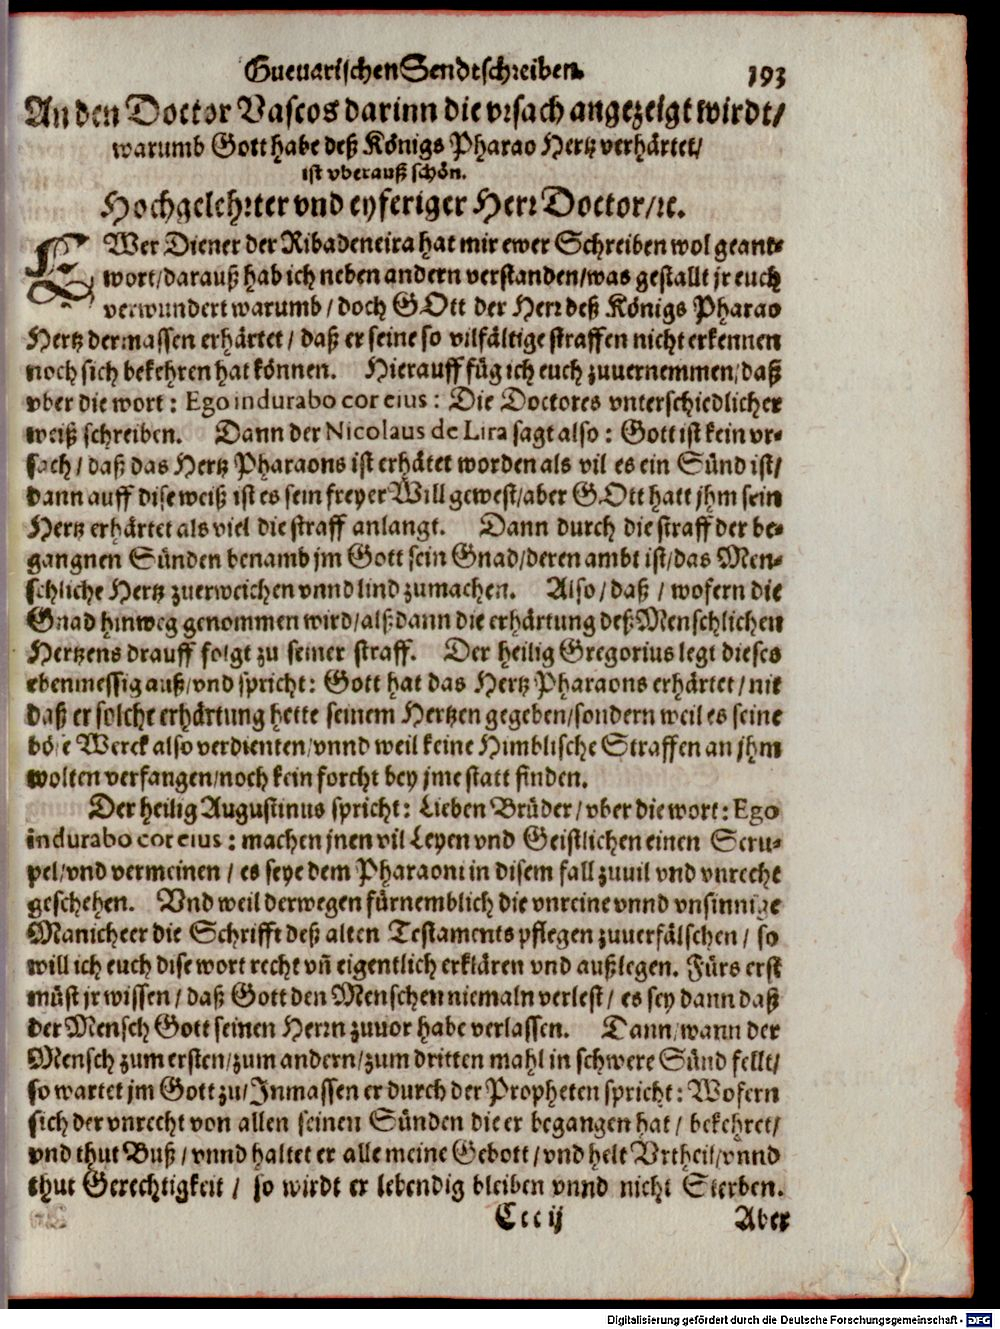 Gueuarischen Sendtschreiben. 193
An den Doctor Vascos darinn die vrsach angezeigt wirdt/
warumb Gott habe deß Königs Pharao Hertz verhärtet/
ist vberauß schön.
Hochgelehrter vnd eyferiger Herr Doctor/ꝛc.
EWer Diener der Ribadeneira hat mir ewer Schreiben wol geant-
wort/darauß hab ich neben andern verstanden/was gestallt jr euch
verwundert warumb/doch GOtt der Herr deß Königs Pharao
Hertz dermassen erhärtet/daß er seine so vilfältige straffen nicht erkennen
noch sich bekehren hat können. Hierauff füg ich euch zuuernemmen/daß
vber die wort: Ego indurabo cor eius: Die Doctores vnterschiedlicher
weiß schreiben. Dann der Nicolaus de Lira sagt also: Gott ist kein vr-
sach/daß das Hertz Pharaons ist erhätet worden als vil es ein Sünd ist/
dann auff dise weiß ist es sein freyer Will gewest/aber GOtt hatt jhm sein
Hertz erhärtet als viel die straff anlangt. Dann durch die straff der be-
gangnen Sünden benamb jm Gott sein Gnad/deren ambt ist/das Men-
schliche Hertz zuerweichen vnnd lind zumachen. Also/daß/wofern die
Gnad hinweg genommen wird/alßdann die erhärtung deß Menschlichen
Hertzens drauff folgt zu seiner straff. Der heilig Gregorius legt dieses
ebenmessig auß/vnd spricht: Gott hat das Hertz Pharaons erhärtet/nit
daß er solche erhärtung hette seinem Hertzen gegeben/sondern weil es seine
böse Werck also verdienten/vnnd weil keine Himblische Straffen an jhm
wolten verfangen/noch kein forcht bey jme statt finden.
Der heilig Augustinus spricht: Lieben Brüder/vber die wort: Ego
indurabo cor eius: machen jnen vil Leyen vnd Geistlichen einen Scru-
pel/vnd vermeinen/es seye dem Pharaoni in disem fall zuuil vnd vnrecht
geschehen. Vnd weil derwegen fürnemblich die vnreine vnnd vnsinnige
Manicheer die Schrifft deß alten Testaments pflegen zuuerfälschen/so
will ich euch dise wort recht vñ eigentlich erklären vnd außlegen. Fürs erst
müst jr wissen/daß Gott den Menschen niemaln verlest/es sey dann daß
der Mensch Gott seinen Herrn zuuor habe verlassen. Dann/wann der
Mensch zum ersten/zum andern/zum dritten mahl in schwere Sünd fellt/
so wartet jm Gott zu/Inmassen er durch der Propheten spricht: Wofern
sich der vnrecht von allen seinen Sünden die er begangen hat/bekehret/
vnd thut Buß/vnnd haltet er alle meine Gebott/vnd helt Vrtheil/vnnd
thut Gerechtigkeit/so wirdt er lebendig bleiben vnnd nicht Sterben.
Ccc ij Aber
Digitalisierung gefördert durch die Deutsche Forschungsgemeinschaft - DFG